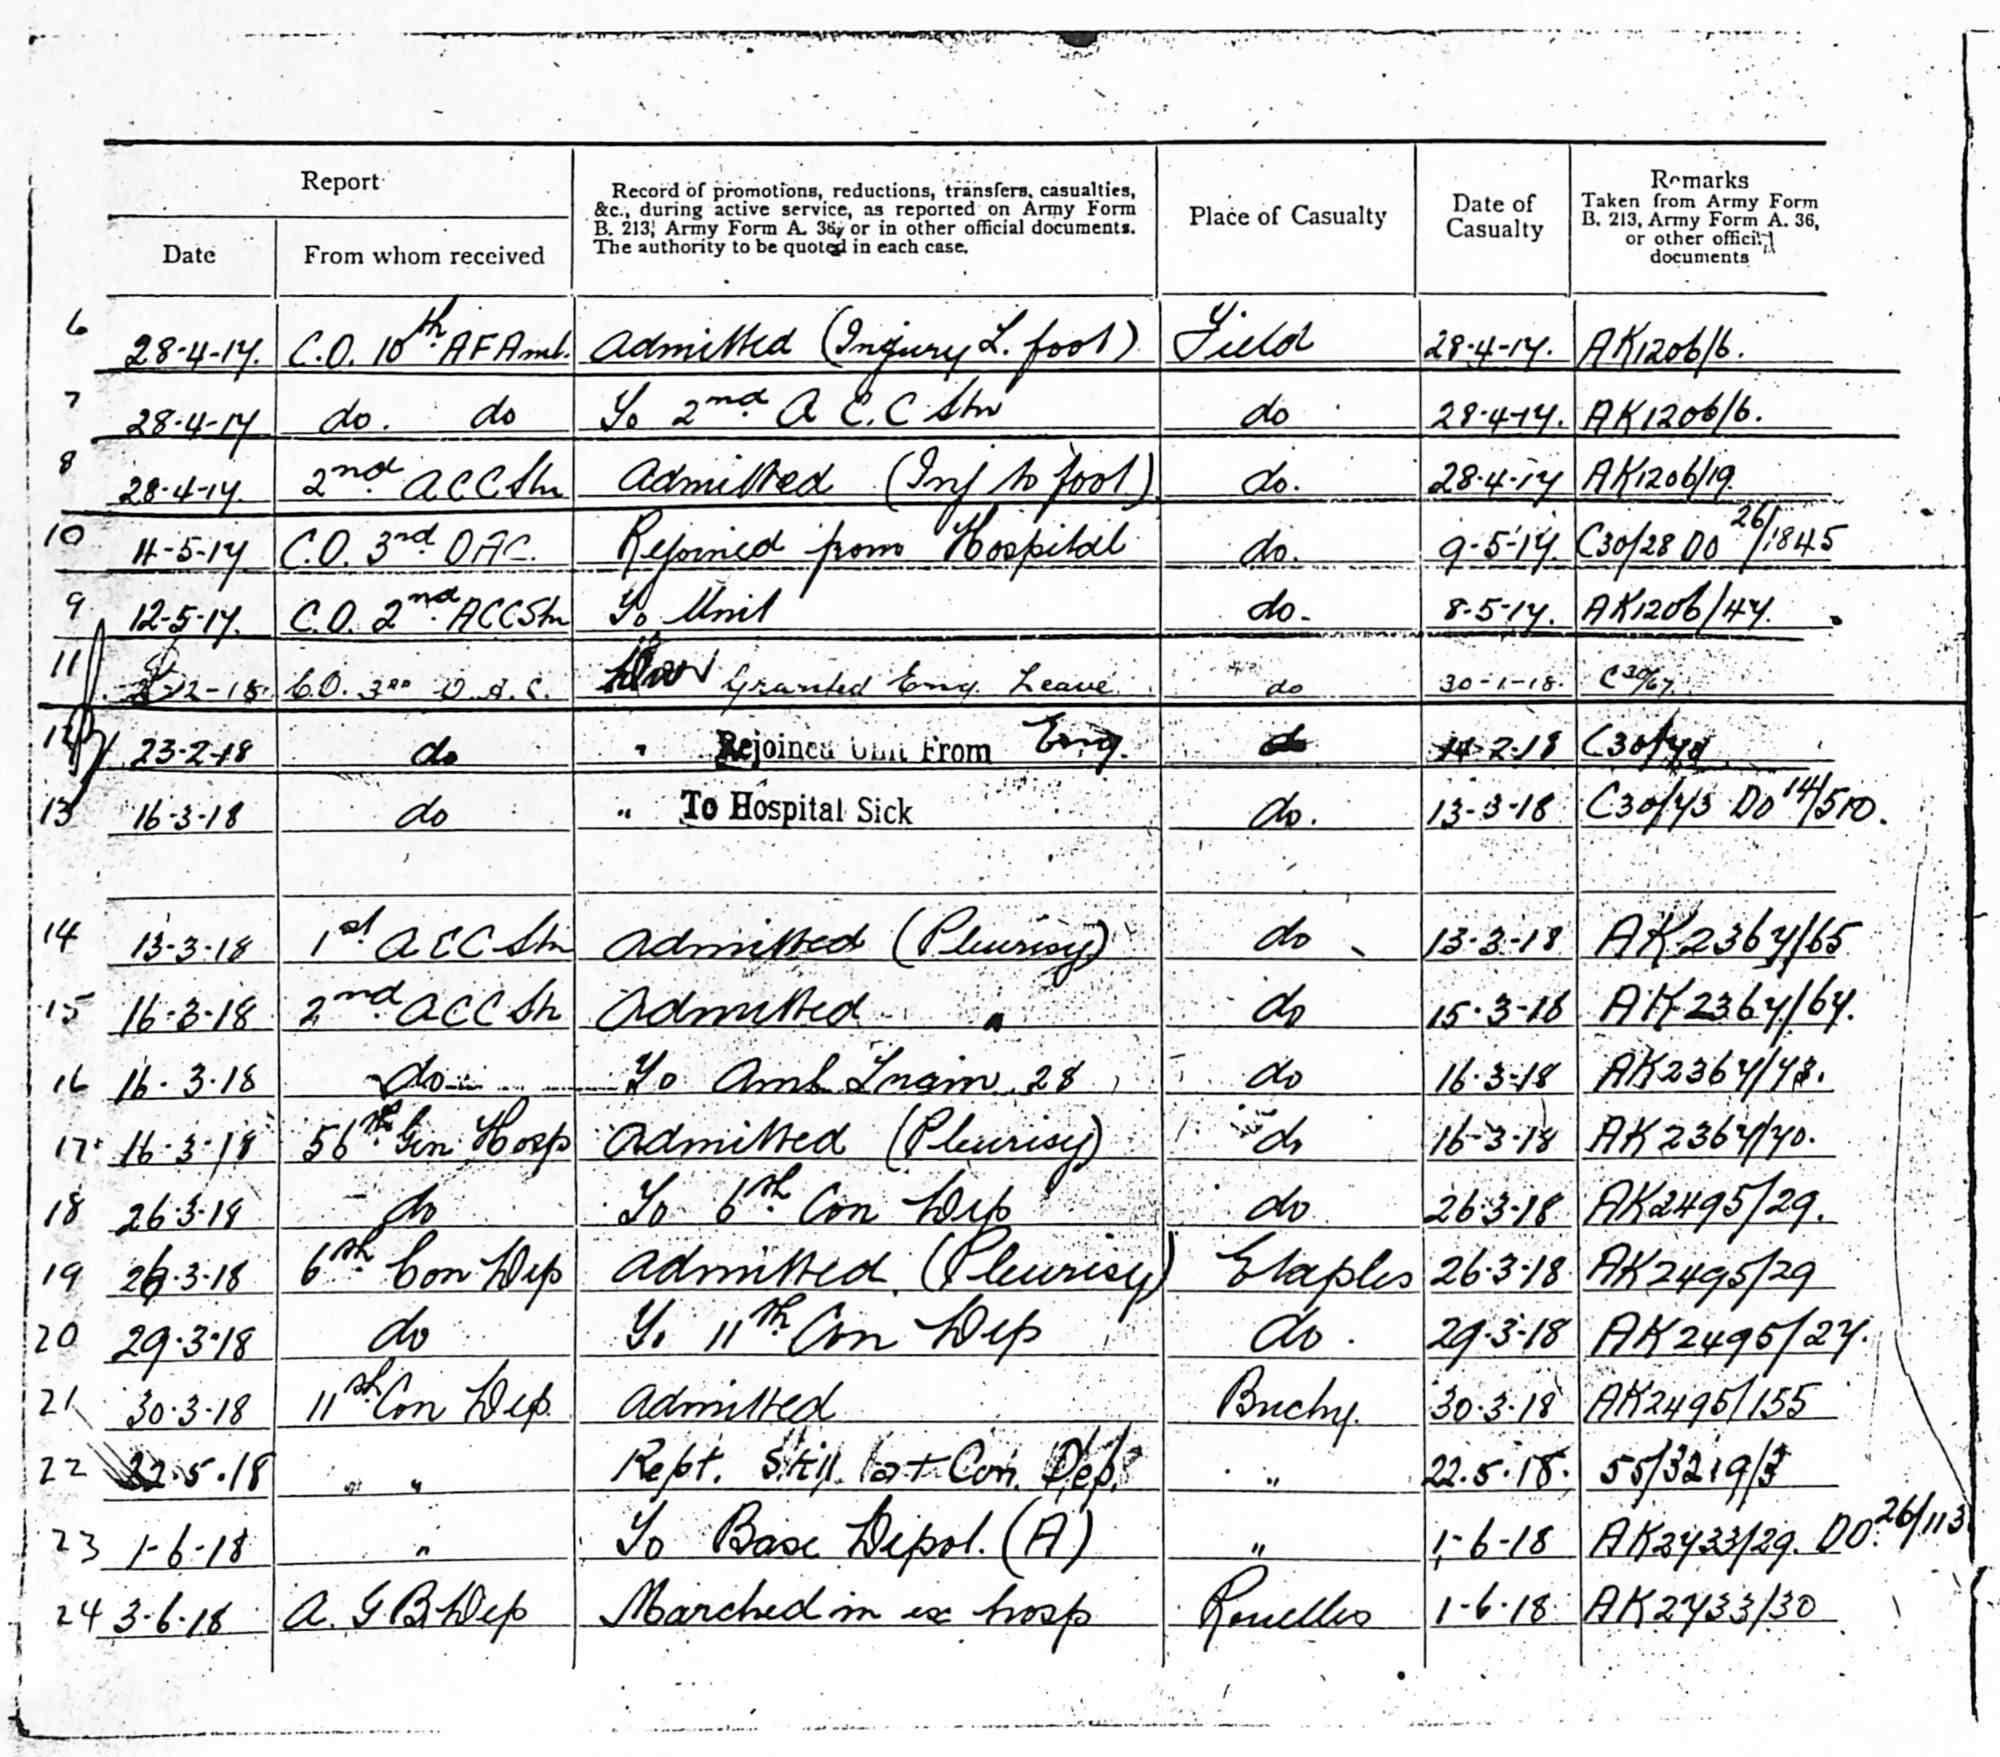 Report
Record of promotions, reductions, transfers, casualties,
&c., during active service, as reported on Army Form
B. 213, Army Form A. 36, or in other official documents.
The authority to be quoted in each case.
Place of Casualty
Date of
Casualty
Remarks
Taken from Army Form
B. 213, Army Form A. 36,
or other official
documents
Date From whom received
6 28-4-17. C.O. 10th AFAmb. Admitted (Injury L. foot) Field 28-4-17. AK1206/6.
7 28-4-17 do. do To 2nd A C.C Stn do 28-4-17. AK1206/6.
8 28-4-17. 2nd ACC Stn Admitted (Inj to foot) do. 28-4-17 AK1206/19
10 11-5-17 C.O. 3rd DAC. Rejoined from Hospital do. 9-5-17. C30/28 DO 26/1845
9 12-5-17. C.O. 2nd ACCStn To Unit do. 8-5-17. AK1206/47.
11 2-12-18. C.O. 3rd D.A.C. Granted Eng. Leave do 30-1-18. C30/67.
12 23-2-18 do " Rejoined Unit From Eng. do 14-2-18 C30/70
13 16-3-18 do " To Hospital Sick do. 13-3-18 C30/73 DO 14/510.
14 13-3-18 1st ACC Stn Admitted (Pleurisy) do 13-3-18 AK2367/65
15 16-3-18 2nd ACC Stn Admitted " do 15-3-18 AK2367/67.
16 16-3-18 do To Amb Train 28 do 16-3-18 AK2367/73.
17 16-3-18 56th Gen Hosp Admitted (Pleurisy) do 16-3-18 AK2367/70.
18 26-3-18 do To 6th Con Dep do 26-3-18 AK2495/29.
19 26-3-18 6th Con Dep Admitted (Pleurisy) Etaples 26-3-18 AK2495/29
20 29-3-18 do To 11th Con Dep do. 29-3-18 AK2495/27.
21 30-3-18 11th Con Dep. Admitted Buchy. 30-3-18 AK2495/155
22 22.5.18 " " Rept. Still at Con. Dep. " 22.5.18. 55/3219/3
23 1-6-18 " To Base Depot. (A) " 1-6-18 AK2733/29. DO. 26/113
24 3-6-18 A. G B. Dep Marched in ex hosp Rouelles 1-6-18 AK2733/30